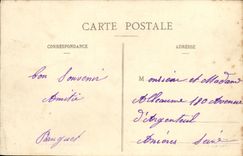 CARTE POSTALE
CORRESPONDANCE
ADRESSE
Bon Souvenir
Amitié
Monsieur et Madame
180 Avenue
d'Argenteuil
Asnières Seine